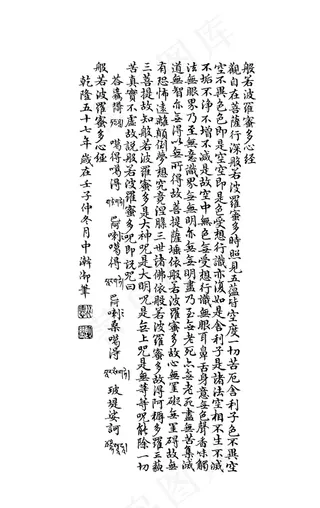 般若波羅蜜多心經
觀自在菩薩行深般若波羅蜜多時照見五蘊皆空度一切苦厄舍利子色不異空
空不異色色即是空空即是色受想行識亦復如是舍利子是諸法空相不生不滅
不垢不淨不增不減是故空中無色無受想行識無眼耳鼻舌身意無色聲香味觸
法無眼界乃至無意識界無無明亦無無明盡乃至無老死亦無老死盡無苦集滅
道無智亦無得以無所得故菩提薩埵依般若波羅蜜多故心無罣礙無罣礙故無
有恐怖遠離顛倒夢想究竟涅槃三世諸佛依般若波羅蜜多故得阿耨多羅三藐
三菩提故知般若波羅蜜多是大神咒是大明咒是無上咒是無等等咒能除一切
苦真實不虛故說般若波羅蜜多咒即說咒曰
噶得噶得 喇噶得 喇桑噶得 玻提娑訶
般若波羅蜜多心經
乾隆五十七年歲在壬子仲冬月中澣御筆